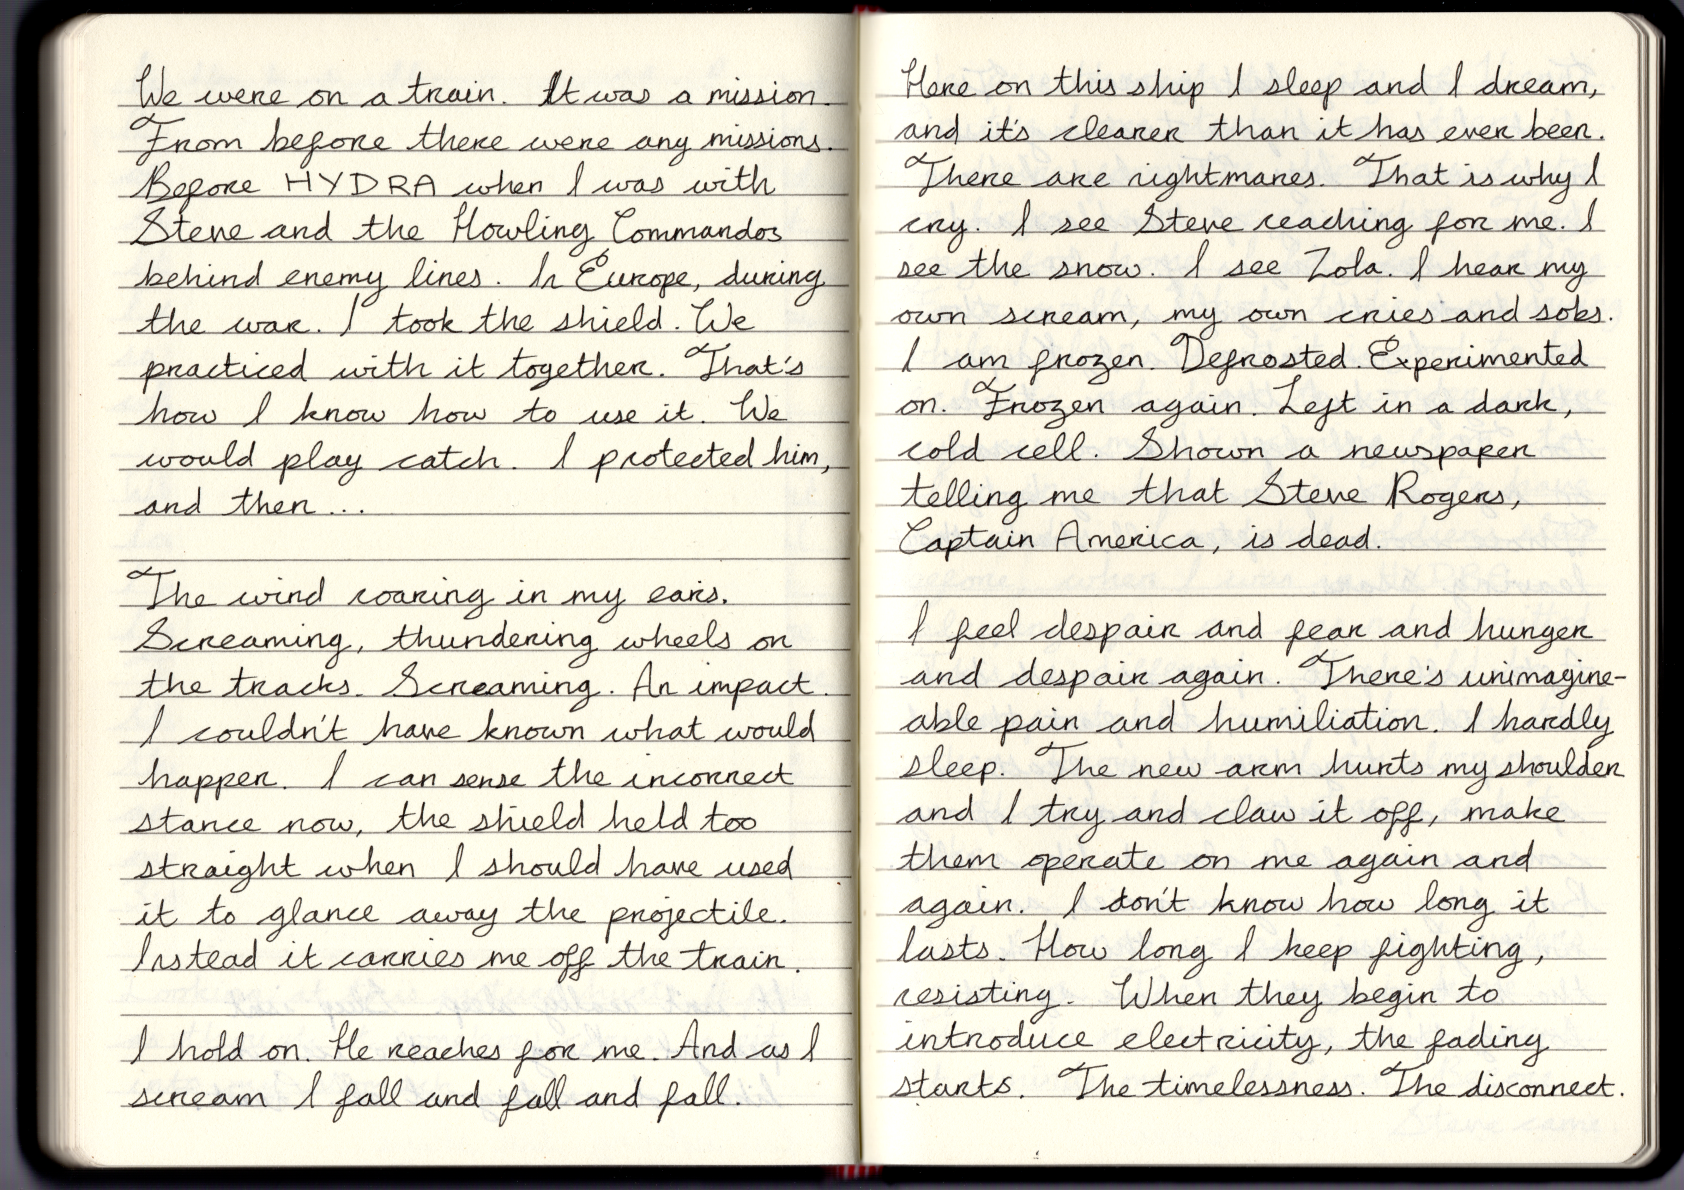 We were on a train. It was a mission.
From before there were any missions.
Before HYDRA when I was with
Steve and the Howling Commandos
behind enemy lines. In Europe, during
the war. I took the shield. We
practiced with it together. That's
how I know how to use it. We
would play catch. I protected him,
and then...
The wind roaring in my ears.
Screaming, thundering wheels on
the tracks. Screaming. An impact.
I couldn't have known what would
happen. I can sense the incorrect
stance now, the shield held too
straight when I should have used
it to glance away the projectile.
Instead it carries me off the train.
I hold on. He reaches for me. And as I
scream I fall and fall and fall.
Here on this ship I sleep and I dream,
and it's clearer than it has ever been.
There are nightmares. That is why I
cry. I see Steve reaching for me. I
see the snow. I see Zola. I hear my
own scream, my own cries and sobs.
I am frozen. Defrosted. Experimented
on. Frozen again. Left in a dark,
cold cell. Shown a newspaper
telling me that Steve Rogers,
Captain America, is dead.
I feel despair and fear and hunger
and despair again. There's unimagine-
able pain and humiliation. I hardly
sleep. The new arm hurts my shoulder
and I try and claw it off, make
them operate on me again and
again. I don't know how long it
lasts. How long I keep fighting,
resisting. When they begin to
introduce electricity, the fading
starts. The timelessness. The disconnect.